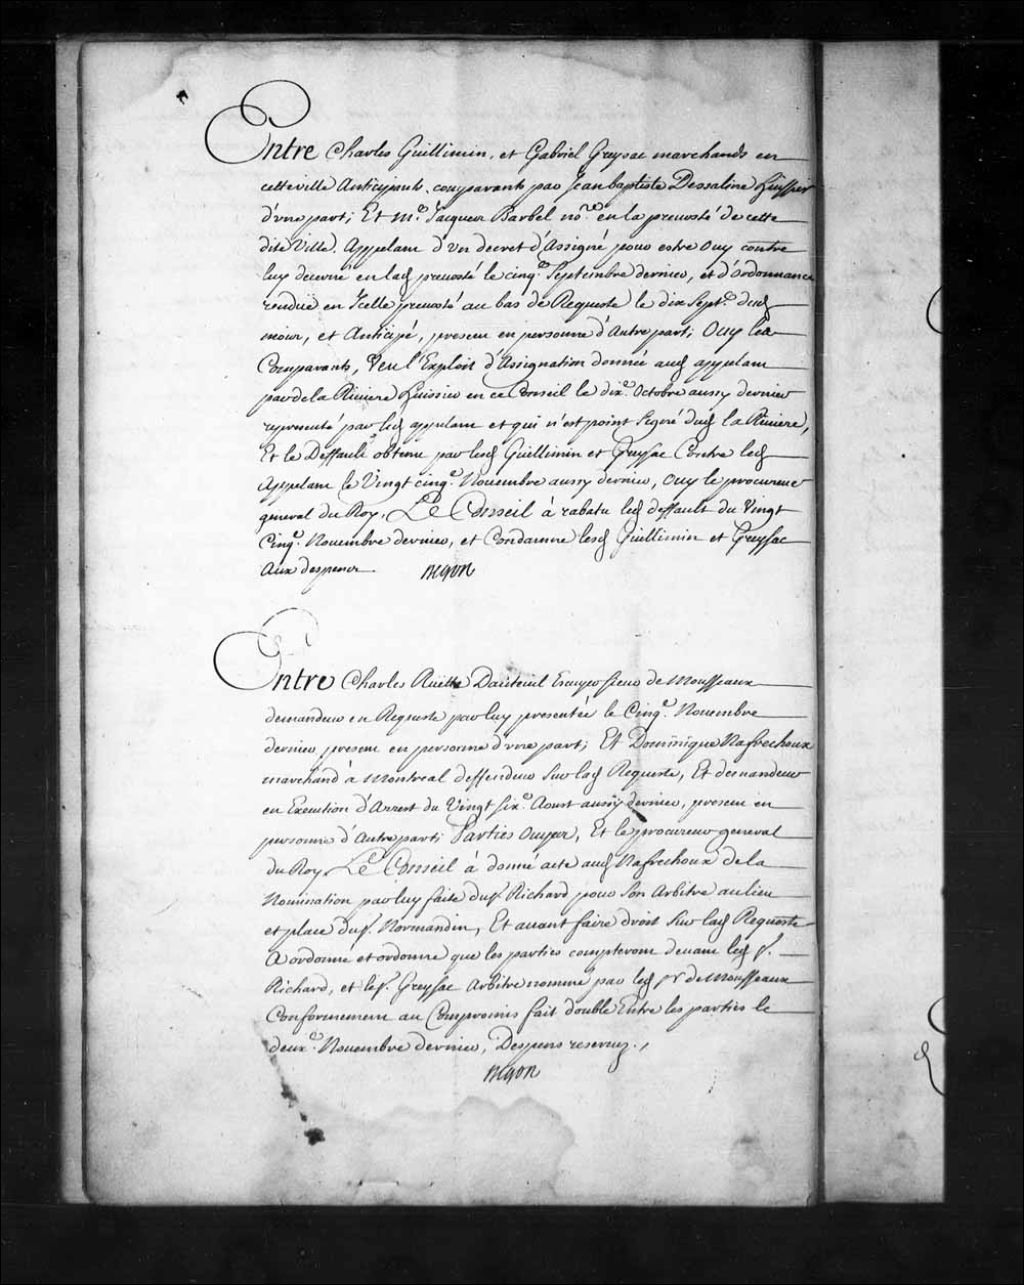 Entre Charles Guillimin, et Gabriel Greysac marchands en
cette ville Anticipants, comparants par Jean baptiste Dessaline huissier
d'vne part; Et Me. Jacques Barbel nore. en la preuosté de cette
dite Ville. Appelant d'vn decret d'Assigné pour estre Ouy contre
luy decerné en lad preuosté le cinqe. Septembre dernier, et d'ordonnance
rendue en Icelle preuosté au bas de Requeste le dix Septe. dud
mois, et Anticipé, present en personne d'Autre part; Ouy les
Comparants, Veu l'Exploit d'Assignation donnée aud appelant
par de la Riuiere huissier en ce Conseil le dixe. Octobre aussy dernier
representé par led appelant et qui n'est point signé dud la Riuiere,
Et le Deffault obtenu par lesd Guillimin et Greysac Contre led
Appelant le Vingt cinqe. Nouembre aussy dernier, ouy le procureur
general du Roy, Le Conseil à rabatu led deffault du Vingt
Cinqe. Nouembre dernier, et Condamne lesd Guillimin et Greysac
Aux despens
Begon
Entre Charles Ruette Dauteuil Escuyer sieur de Mousseaux
demandeur en Requeste par luy presentée le Cinqe. Nouembre
dernier present en personne d'vne part; Et Dominique Nafrechoux
marchand à Montreal deffendeur Sur lad Requeste, Et demandeur
en Execution d'Arrest du Vingt sixe. Aoust aussy dernier, present en
personne d'Autre part; Parties ouyes, Et le procureur general
du Roy, Le Conseil à donné acte aud Nafrechoux de la
Nomination par luy faite du sr. Richard pour Son Arbitre au lieu
et place du sr. Normandin, Et auant faire droit Sur lad Requeste
A ordonné et ordonne que les parties compteront deuant led sr.
Richard, et le sr. Greysac Arbitre nommé par led sr de Mousseaux
Conformement au Compromis fait double Entre les parties le
deuxe. Nouembre dernier, Despens reseruez.
Begon